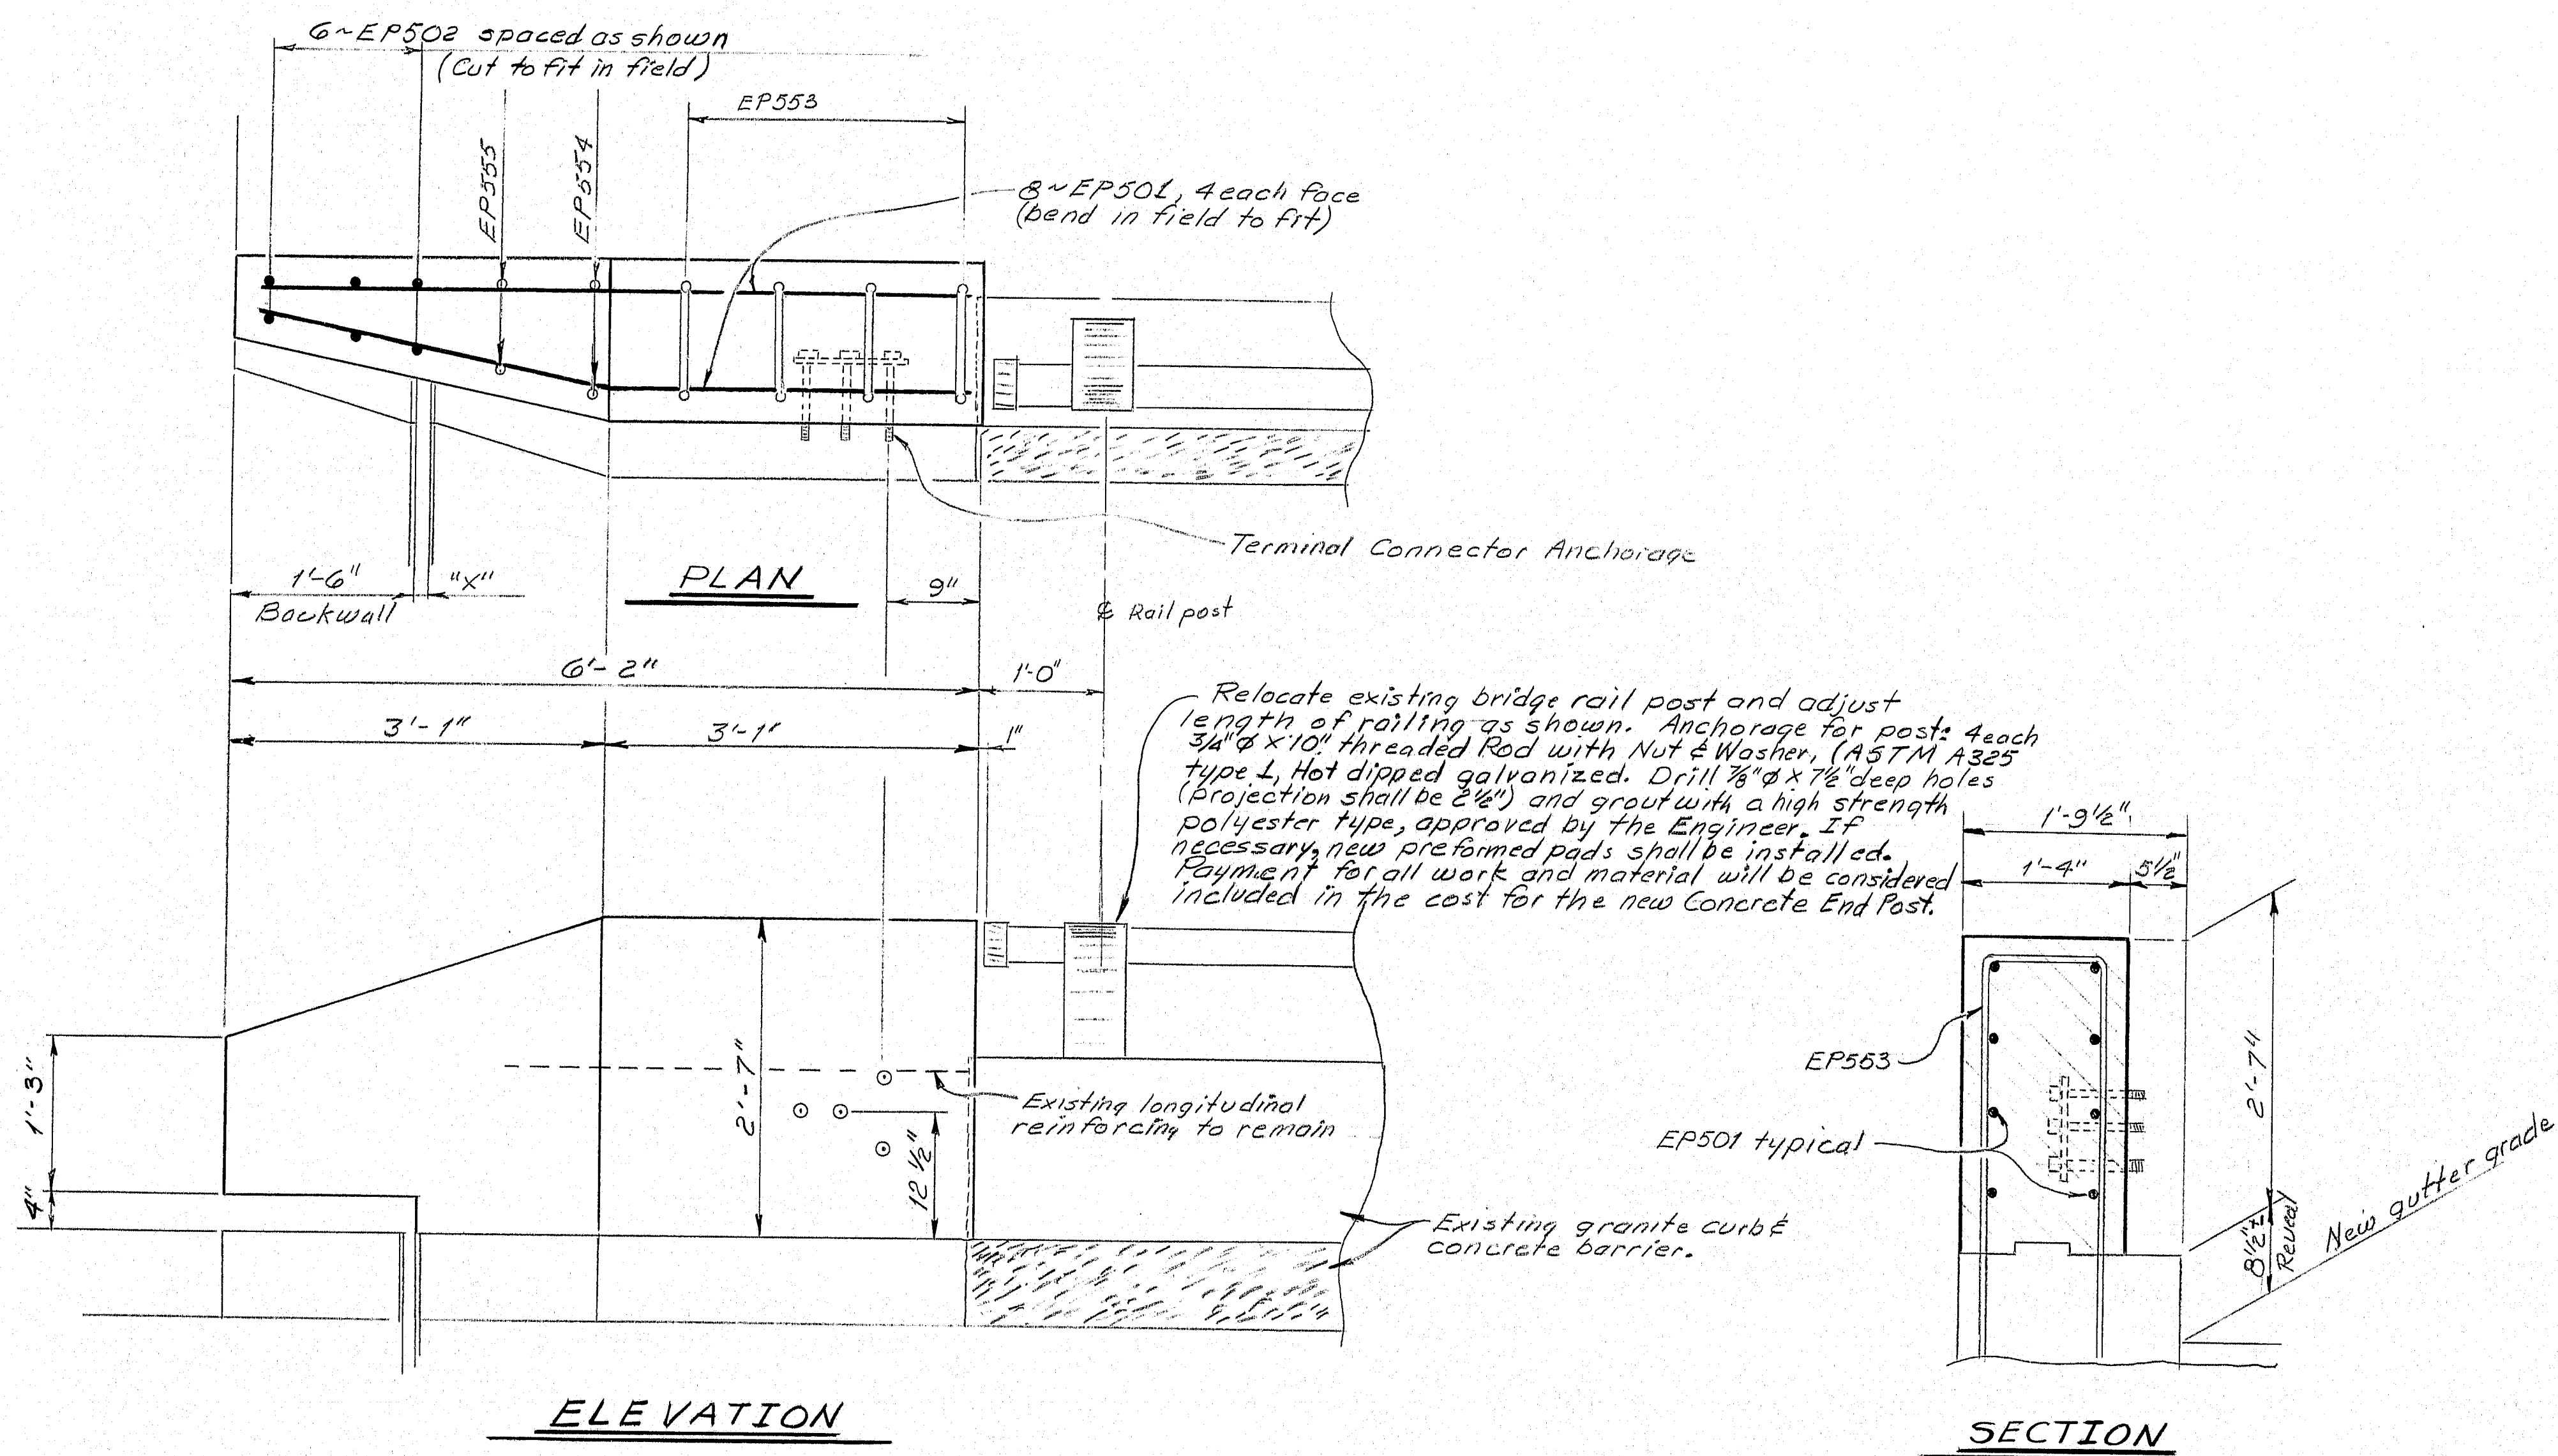 6~EP502 spaced as shown
(Cut to fit in field)
EP553
EP555
EP554
8~EP501, 4 each face
(bend in field to fit)
Terminal Connector Anchorage
1'-6"
"X"
PLAN
9"
Backwall
℄ Rail post
6'-2"
1'-0"
3'-1"
3'-1"
1"
Relocate existing bridge rail post and adjust
length of railing as shown. Anchorage for post: 4 each
3/4"φ x 10" threaded Rod with Nut & Washer, (ASTM A325
type 1, Hot dipped galvanized. Drill 7/8"φ x 7 1/2" deep holes
(projection shall be 2 1/2") and grout with a high strength
polyester type, approved by the Engineer. If
necessary, new preformed pads shall be installed.
Payment for all work and material will be considered
included in the cost for the new Concrete End Post.
1'-9 1/2"
1'-4"
5 1/2"
1'-3"
4"
2'-7"
12 1/2"
Existing longitudinal
reinforcing to remain
Existing granite curb &
concrete barrier.
EP553
EP501 typical
2'-7"
8 1/2"±
Reveal
New gutter grade
ELEVATION
SECTION